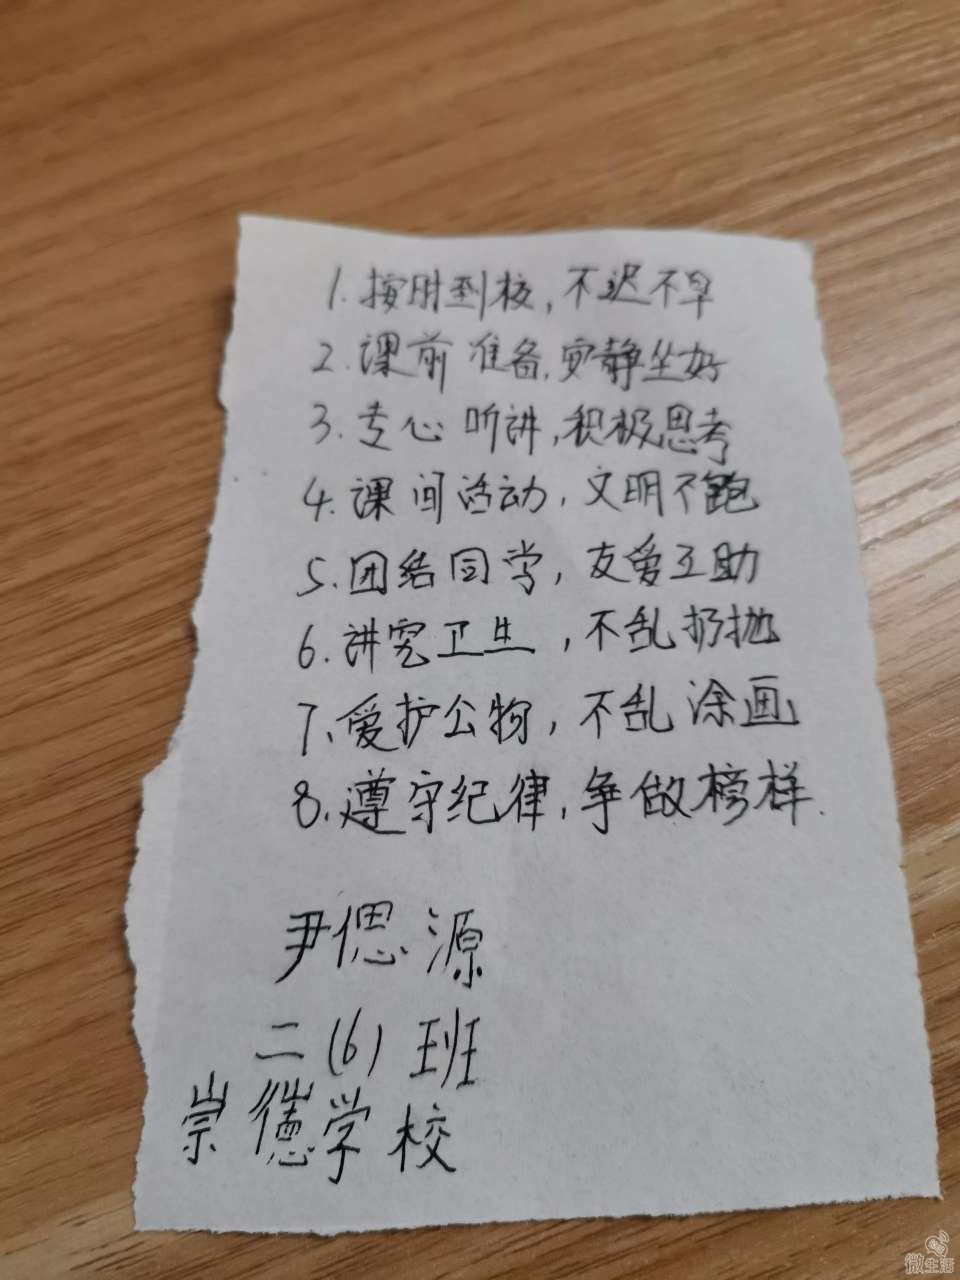 1. 按时到校, 不迟不早
2. 课前准备, 安静坐好
3. 专心听讲, 积极思考
4. 课间活动, 文明不跑
5. 团结同学, 友爱互助
6. 讲究卫生, 不乱扔抛
7. 爱护公物, 不乱涂画
8. 遵守纪律, 争做榜样.
尹偲源
二(6)班
崇德学校
微生活